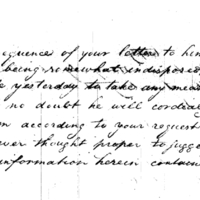 sequence of your letter to him
being somewhat indisposed
yesterday to take any mea
no doubt he will cordial
m according to your request
ever thought proper to sugge
information herein contain